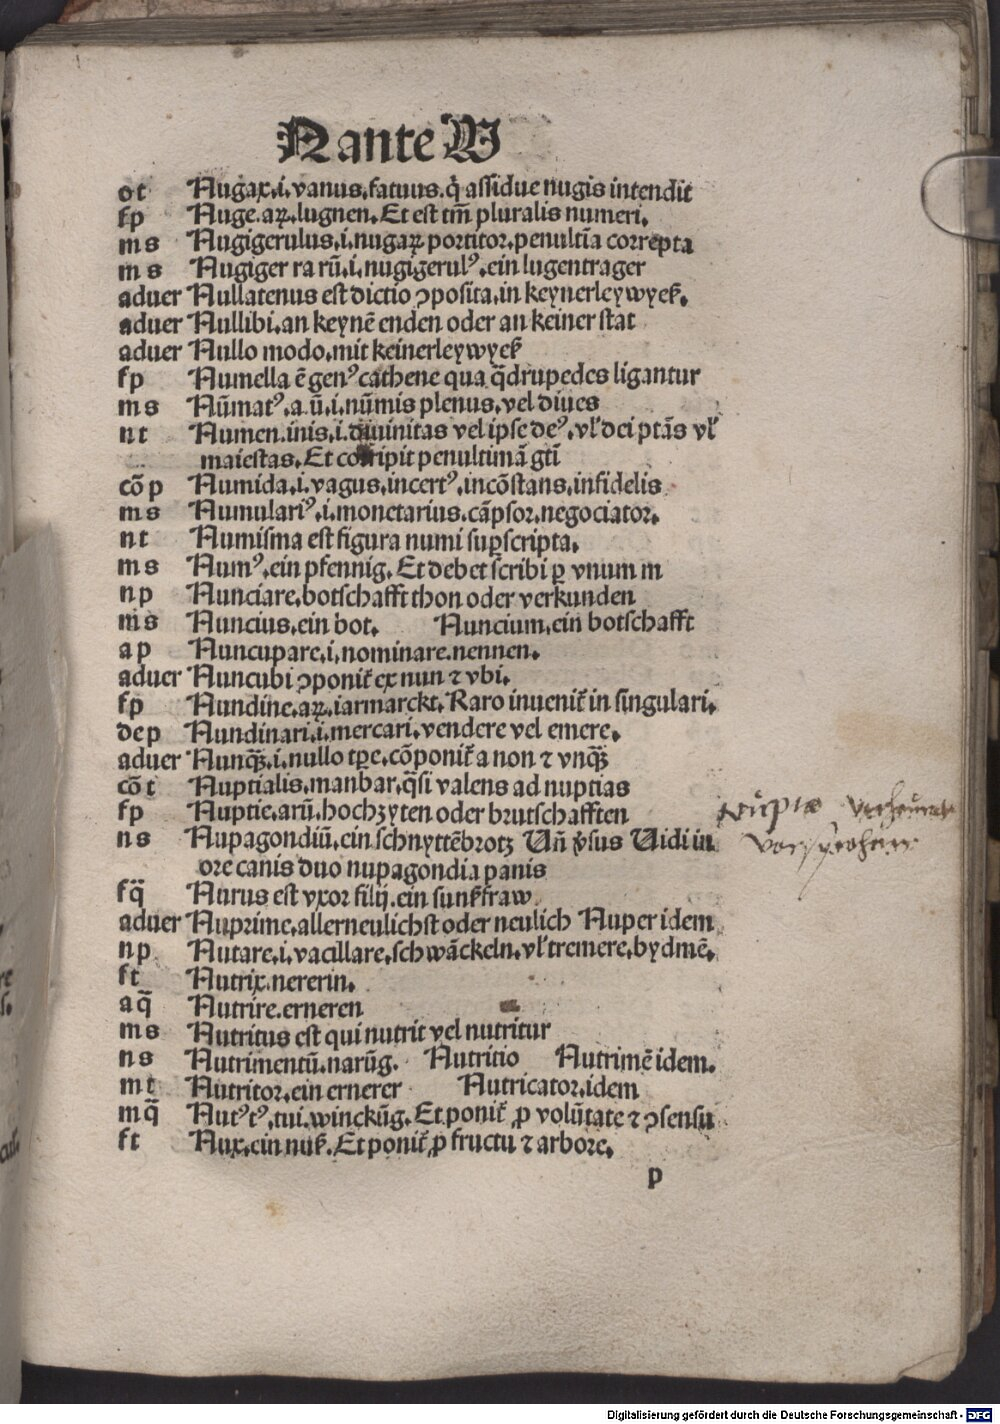 N ante V
ot Nugax.i.vanus.fatuus.q̇ assidue nugis intendit
fp Nuge.aꝝ.lugnen.Et est tm̄ pluralis numeri.
ms Nugigerulus.i.nugaꝝ portitor.penultīa correpta
ms Nugiger ra rū.i.nugigerulꝰ.ein lugentrager
aduer Nullatenus est dictio ꝯposita.in keynerley wyeß.
aduer Nullibi.an keynē enden oder an keiner stat
aduer Nullo modo.mit keinerley wyeß
fp Numella ē genꝰ cathene qua q̄drupedes ligantur
ms Nūmatꝰ.a.ū.i.nūmis plenus.vel diues
nt Numen.inis.i.diuinitas vel ipse deꝰ.vl̓ dei ptās vl̓
maiestas.Et corripit penultimā gti̅
cō p Numida.i.vagus.incertꝰ.incōstans.infidelis
ms Numulariꝰ.i.monetarius.cāpsor.negociator.
nt Numisma est figura numi suꝑscripta.
ms Numꝰ.ein pfennig.Et debet scribi ꝑ vnum m
np Nunciare.botschafft thon oder verkunden
ms Nuncius.ein bot. Nuncium.ein botschafft
ap Nuncupare.i.nominare.nennen.
aduer Nuncubi ꝯponit̃ ex nun ⁊ vbi.
fp Nundine.aꝝ.iarmarckt.Raro inuenit̃ in singulari.
dep Nundinari.i.mercari.vendere vel emere.
aduer Nunq̄ꝫ.i.nullo tꝑe.cōponit̃ a non ⁊ vnq̄ꝫ
cō t Nuptialis.manbar.q̄si valens ad nuptias
fp Nuptie.arū.hochzyten oder brutschafften
Nuptiae
ns Nupagondiū.ein schnyttēbrotz Uñ v̓sus Uidi in
ore canis duo nupagondia panis
fq̄ Nurus est vxor filij.ein sunßfraw
aduer Nuprime.allerneulichst oder neulich Nuper idem
np Nutare.i.vacillare.schwāckeln.vl̓ tremere.bydmē.
ft Nutrix.nererin.
aq̄ Nutrire.erneren
ms Nutritus est qui nutrit vel nutritur
ns Nutrimentū.narūg. Nutritio Nutrimē idem.
mt Nutritor.ein ernerer Nutricator.idem
mq̄ Nutꝰtꝰ.tui.winckūg.Et ponit̃ ꝓ volūtate ⁊ ꝯsensu
ft Nux.ein nuß.Et ponit̃ ꝓ fructu ⁊ arbore.
p
Digitalisierung gefördert durch die Deutsche Forschungsgemeinschaft - DFG